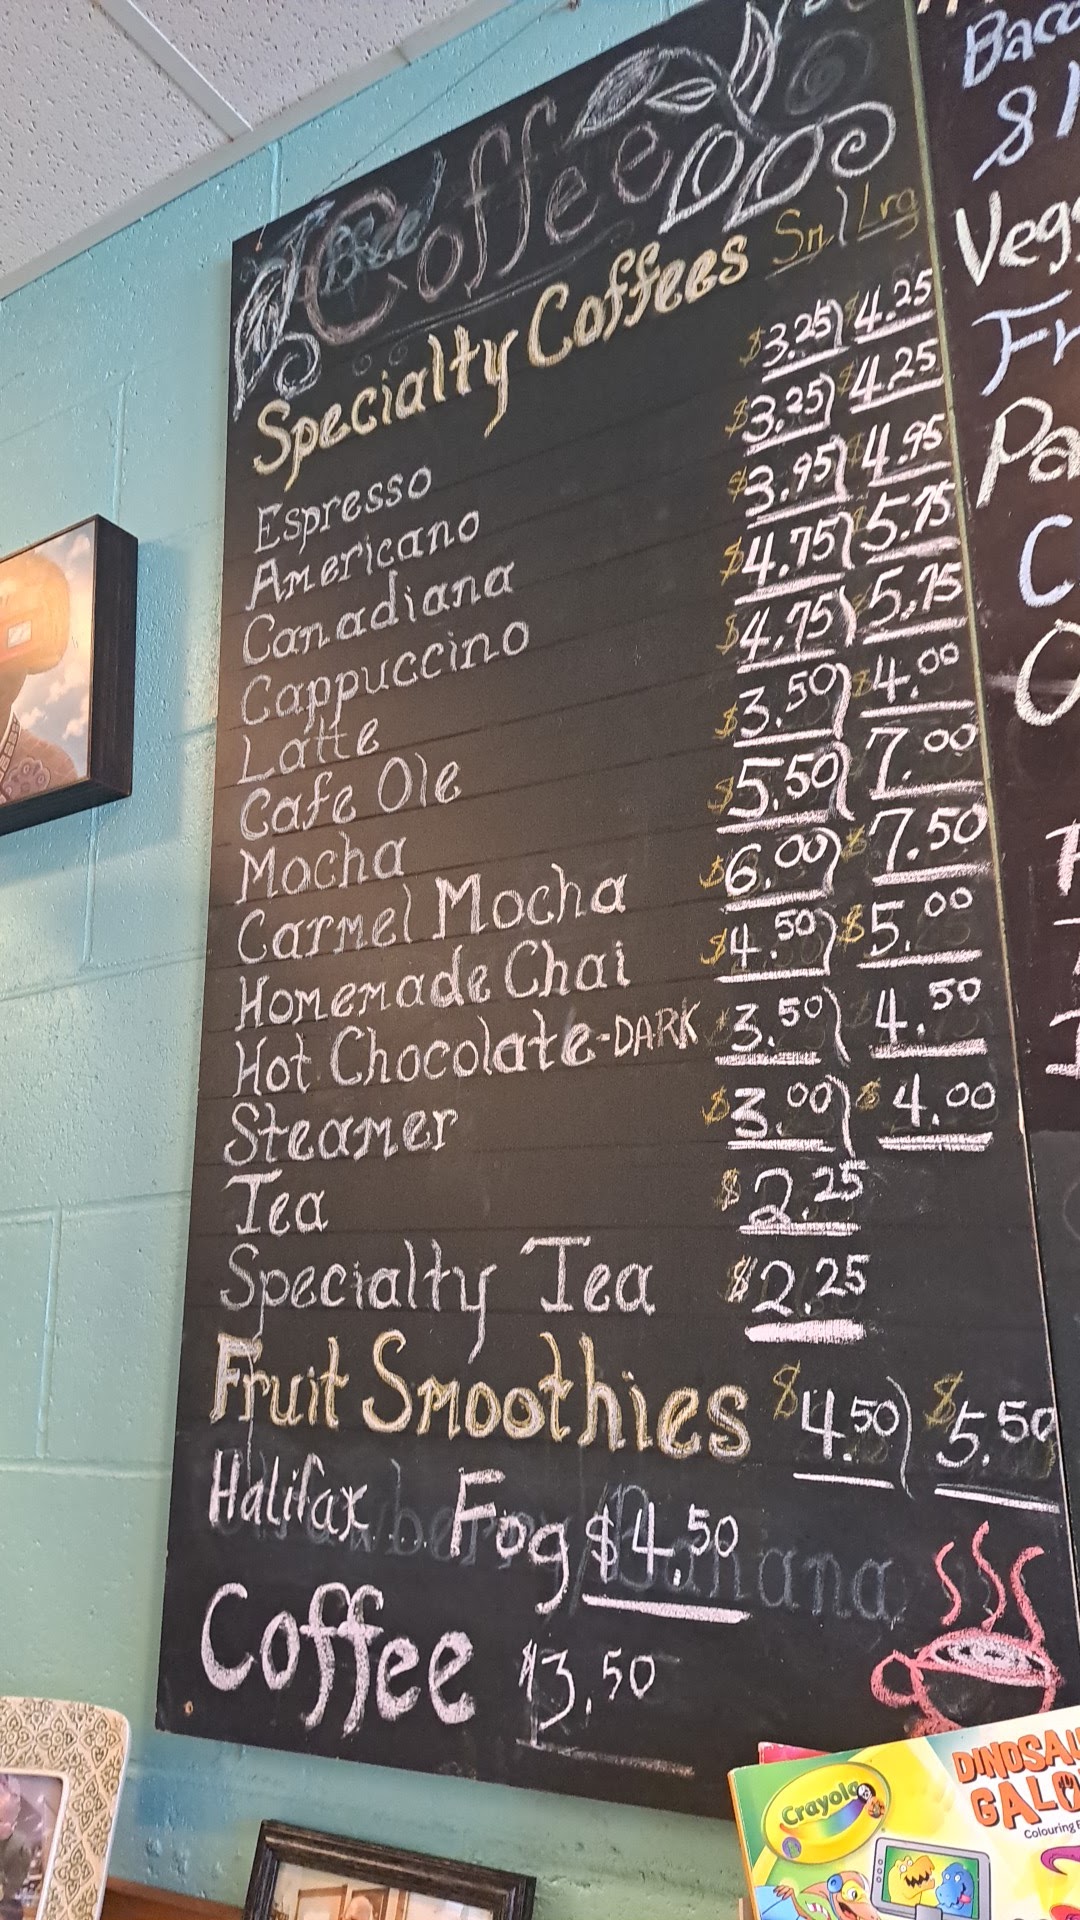 Coffee
Specialty Coffees Sm/Lrg
Espresso $3.25/$4.25
Americano $3.25/$4.25
Canadiana $3.95/$4.95
Cappuccino $4.75/$5.75
Latte $4.75/$5.75
Cafe Ole $3.50/$4.00
Mocha $5.50/7.00
Carmel Mocha $6.00/$7.50
Homemade Chai $4.50/$5.00
Hot Chocolate-DARK 3.50/4.50
Steamer $3.00/$4.00
Tea $2.25
Specialty Tea $2.25
Fruit Smoothies $4.50/$5.50
Halifax Fog $4.50
Coffee $3.50
Crayola
Colouring